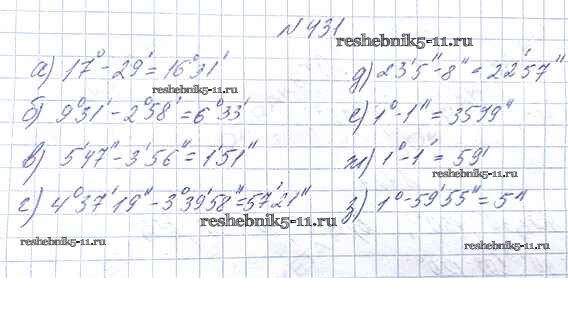 № 431
reshebnik5-11.ru
а) 17° - 29' = 16°31'
reshebnik5-11.ru
б) 9°31' - 2°58' = 6°33'
в) 5'47" - 3'56" = 1'51"
г) 4°37'19" - 3°39'58" = 57'21"
reshebnik5-11.ru
reshebnik5-11.ru
д) 23'5" - 8" = 22'57"
е) 1° - 1" = 3599"
ж) 1° - 1' = 59'
reshebnik5-11.ru
з) 1° - 59'55" = 5"
reshebnik5-11.ru